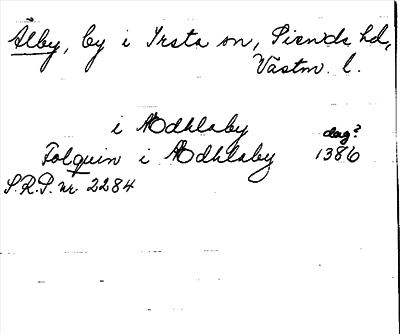 Ålby, by i Irsta sn, Siende hd,
Västm. l.
i Ødhlaby dag?
Folquin i Ødhlaby 1386
S.R.P. nr 2284